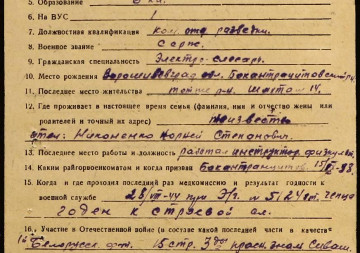 5. Образование 6 кл.
6. На ВУС 1
7. Должностная квалификация ком. отд. разведки.
8. Военное звание Серж.
9. Гражданская специальность Электр. слесарь
10. Место рождения Ворошиловград обл. Бокоантрацитовский р-н
11. Последнее место жительства тот же р-н. шахта
12. Где проживает в настоящее время семья (фамилия, имя и отчество жены или
родителей и точный их адрес) неизвестно
отец: Никоненко Корней Степанович.
13. Последнее место работы и должность работал инструктор. физкульт.
14. Каким райгорвоенкоматом и когда призван Бокоантрацитов.
15. Когда и где проходил последний раз медкомиссию и результат годности к
военной службе 28/VII-44 при Э/г. № 5124
годен к строевой сл.
16. Участие в Отечественной войне (в составе какой последней части в качестве
Белорусск. фт. 15 стр. 3 краснознам Сиваш.